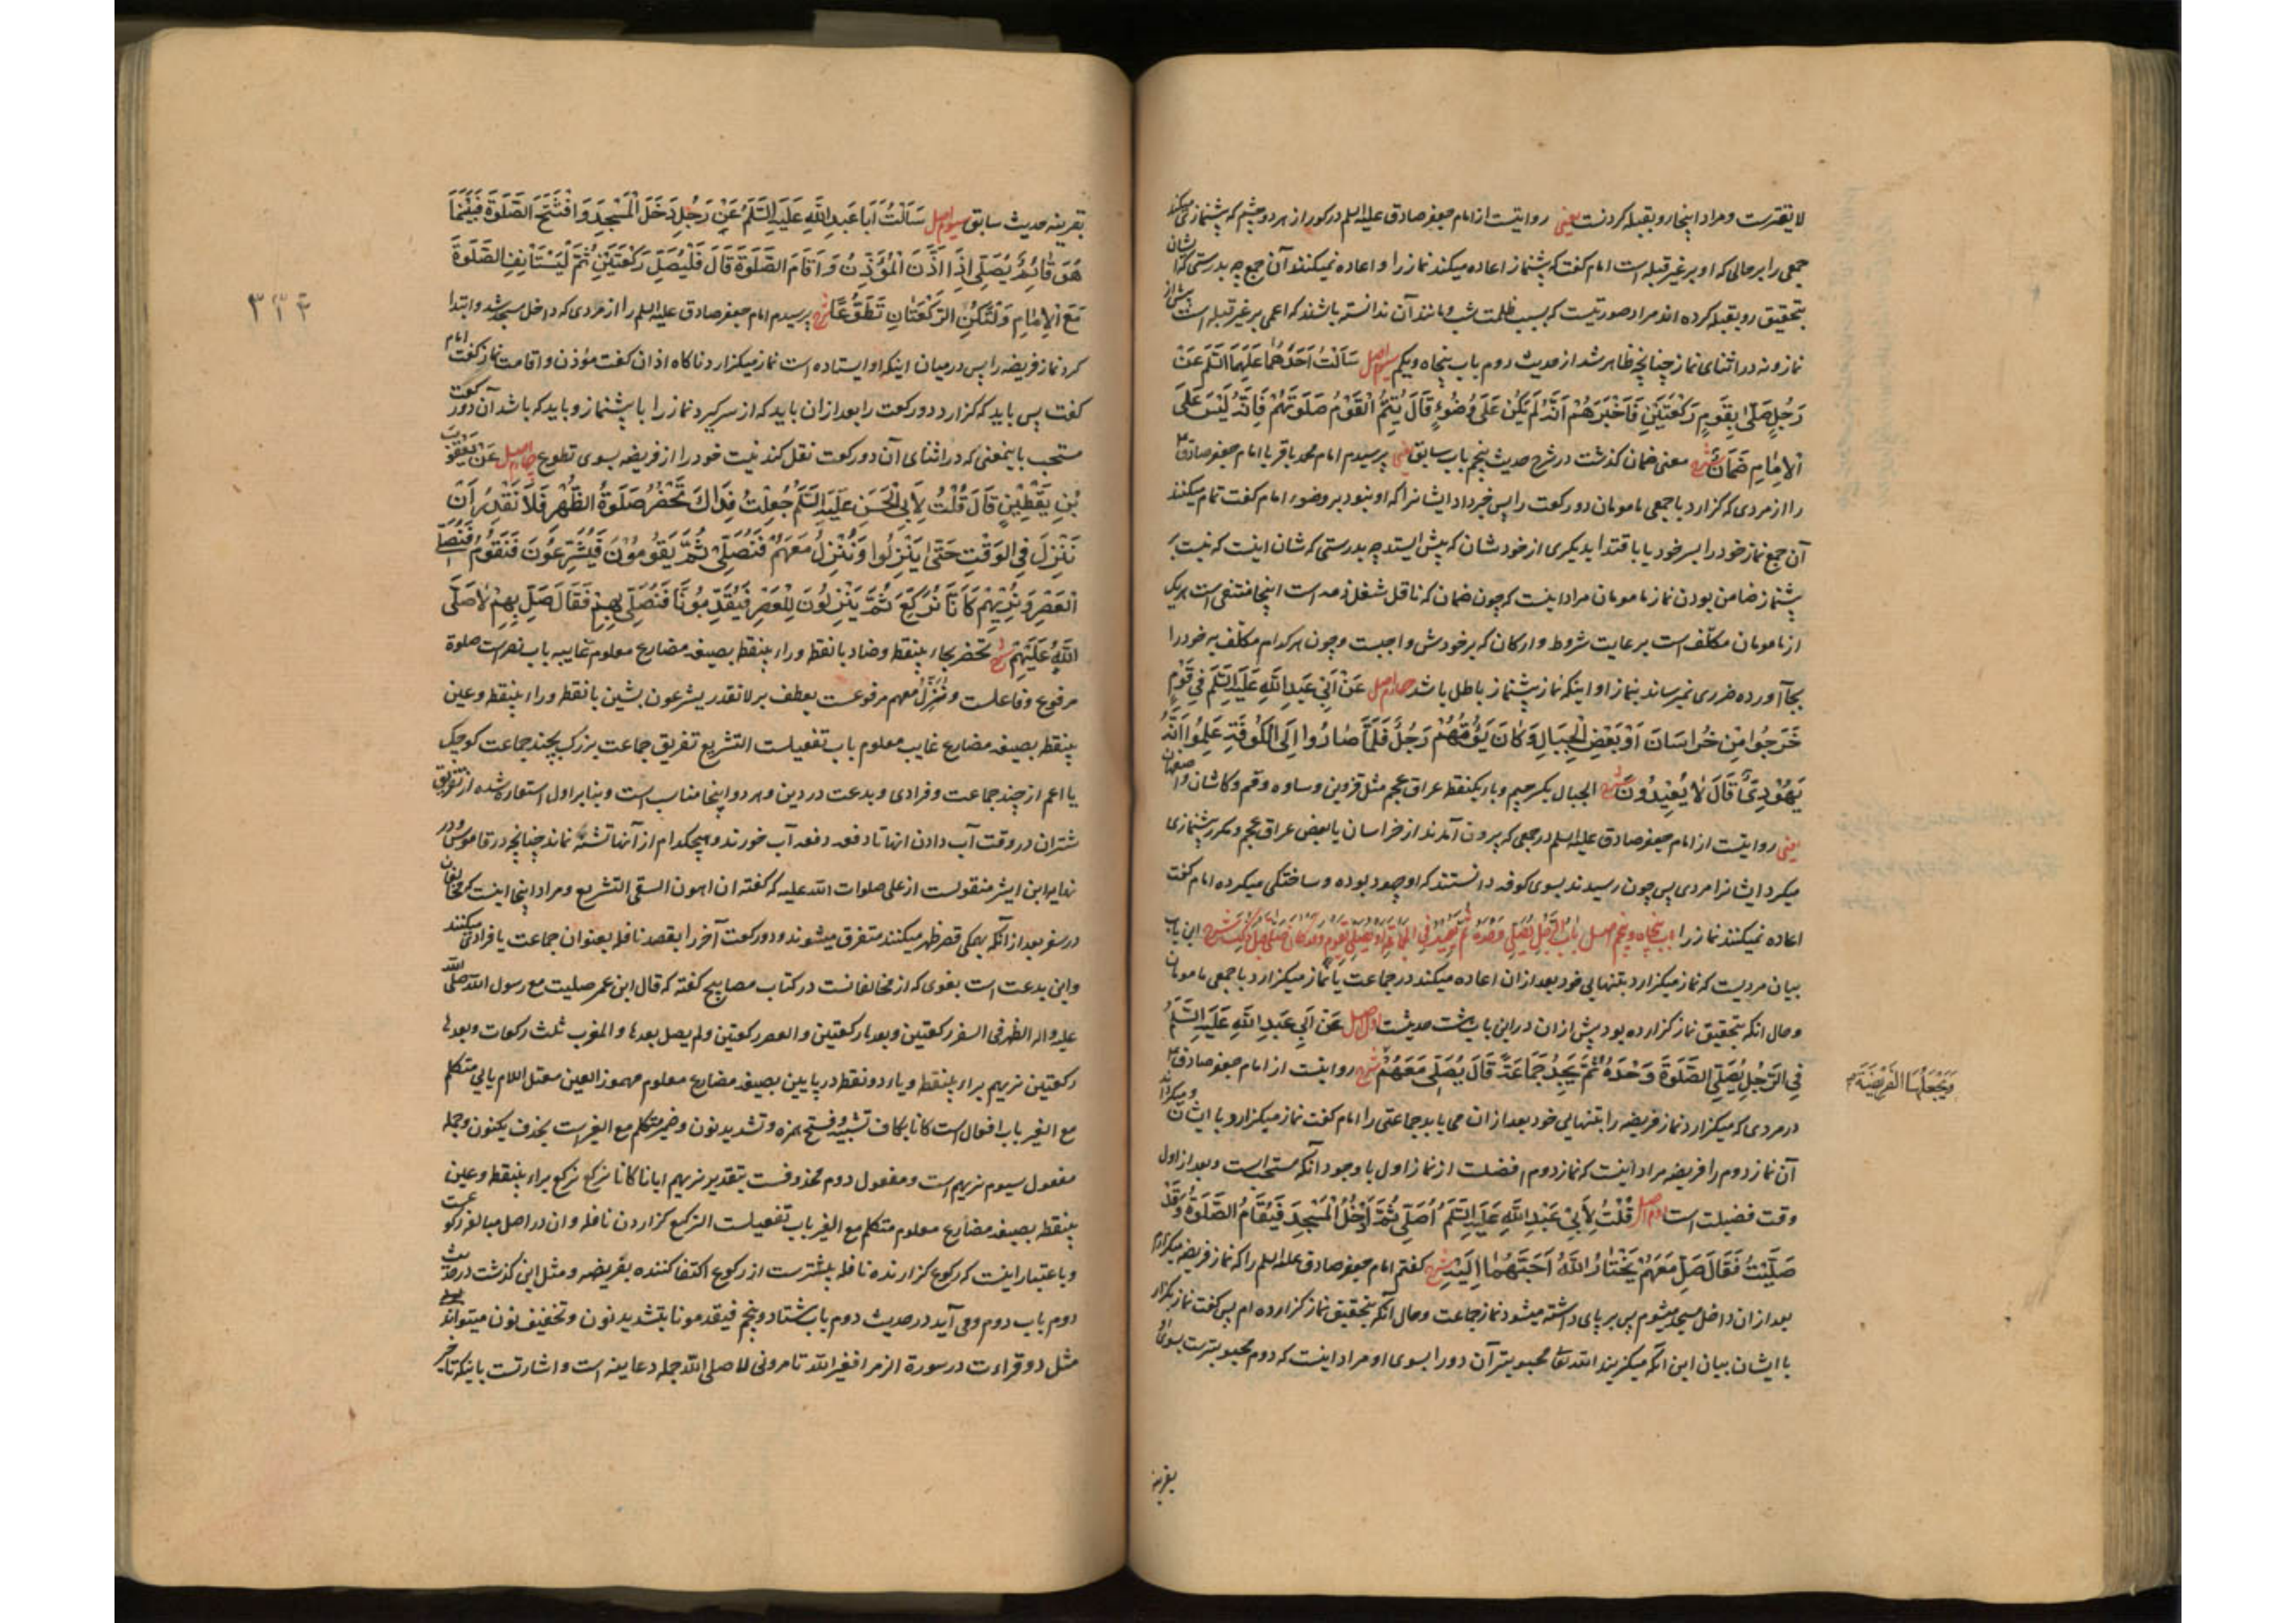 لا تقصرست ومراد اینجا رو بقبله کردنست یعنی روایتست از امام جعفر صادق علیه السلم در کور از هر دو چشم که پیشنمازی میکند
جمعی را بر حالی که او بر غیر قبله است امام گفت که پیشنماز اعاده میکند نماز را و اعاده نمیکنند آن جمع چه بدرستی که ایشان
بتحقیق رو بقبله کرده اند مراد صورتیست که بسبب ظلمت شب و مانند آن ندانسته باشند که اعمی بر غیر قبله است پیش از
نماز و نه در اثنای نماز چنانچه ظاهر شد از حدیث دوم باب پنجاه و یکم سیوم اصل سَاَلْتُ اَحَدَهُما عَلَیْهِمَا السَّلَمُ عَنْ
رَجُلٍ صَلّٰی بِقَوْمٍ رَکْعَتَیْنِ فَاَخْبَرَهُمْ اَنَّهُ لَمْ یَکُنْ عَلٰی وُضُوءٍ قَالَ یُتِمُّ الْقَوْمُ صَلٰوتَهُمْ فَاِنَّهُ لَیْسَ عَلَی
الْاِمَامِ ضَمَانٌ شرح معنی ضمان گذشت در شرح حدیث پنجم باب سابق یعنی پرسیدم امام محمد باقر یا امام جعفر صادق
را از مردی که گزارد با جمعی مامومان دو رکعت را پس خبر داد ایشانرا که او نبود بر وضو امام گفت تمام میکنند
آن جمع نماز خود را بسر خود یا باقتدا بدیگری از خودشان که پیش ایستد چه بدرستی که شان اینست که نیست بر
پیشنماز ضامن بودن نماز مامومان مراد اینست که چون ضمان که ناقل شغل ذمه است اینجا منتفی است هر یک
از مامومان مکلّف است برعایت شروط و ارکان که بر خودش واجبست و چون هر کدام مکلّف به خود را
بجا آورده ضرری نمیرساند بنماز او اینکه نماز پیشنماز باطل باشد چهارم اصل عَنْ اَبِی عَبْدِ اللّٰهِ عَلَیْهِ السَّلَمُ فِی قَوْمٍ
خَرَجُوا مِنْ خُرَاسَانَ اَوْ بَعْضِ الْجِبَالِ وَکَانَ یَؤُمُّهُمْ رَجُلٌ فَلَمَّا صَارُوا اِلَی الْکُوفَةِ عَلِمُوا اَنَّهُ
یَهُودِیٌّ قَالَ لَا یُعِیدُونَ شرح الجبال بکسر جیم و با یکنقطه عراق عجم مثل قزوین و ساوه و قم و کاشان و اصفهان
یعنی روایتست از امام جعفر صادق علیه السلم در جمعی که برون آمدند از خراسان یا بعض عراق عجم و مکرر پیشنمازی
میکرد ایشانرا مردی پس چون رسیدند بسوی کوفه دانستند که او جهود بوده و ساختگی میکرده امام گفت
اعاده نمیکنند نماز را باب پنجاه و پنجم اصل بَابُ الرَّجُلِ یُصَلِّی وَحْدَهُ ثُمَّ یُعِیدُ فِی الْجَمَاعَةِ اَوْ یُصَلِّی بِقَوْمٍ وَقَدْ کَانَ صَلّٰی قَبْلَ ذٰلِکَ شرح این باب
بیان مردیست که نماز میگزارد بتنهایی خود بعد از آن اعاده میکند در جماعت یا نماز میگزارد با جمعی مامومان
و حال آنکه بتحقیق نماز گزارده بود پیش از آن در این باب هشت حدیثست اول اصل عَنْ اَبِی عَبْدِ اللّٰهِ عَلَیْهِ السَّلَمُ
فِی الرَّجُلِ یُصَلِّی الصَّلٰوةَ وَحْدَهُ ثُمَّ یَجِدُ جَمَاعَةً قَالَ یُصَلِّی مَعَهُمْ شرح روایتست از امام جعفر صادق
وَیَجْعَلُهَا الْفَرِیضَةَ
در مردی که میگزارد نماز فریضه را بتنهایی خود بعد از آن می یابد جماعتی را امام گفت نماز میگزارد با ایشان و میگرداند
آن نماز دوم را فریضه مراد اینست که نماز دوم افضلست از نماز اول با وجود آنکه مستحبست و بعد از اول
وقت فضیلت است دوم اصل قُلْتُ لِاَبِی عَبْدِ اللّٰهِ عَلَیْهِ السَّلَمُ اُصَلِّی ثُمَّ اَدْخُلُ الْمَسْجِدَ فَیُقَامُ الصَّلٰوةُ وَقَدْ
صَلَّیْتُ فَقَالَ صَلِّ مَعَهُمْ یَخْتَارُ اللّٰهُ اَحَبَّهُمَا اِلَیْهِ شرح گفتم امام جعفر صادق علیه السلم را که نماز فریضه میگزارم
بعد از آن داخل مسجد میشوم پس بر پای داشته میشود نماز جماعت و حال آنکه بتحقیق نماز گزارده ام پس گفت نماز بگزار
با ایشان بیان این آنکه میگزیند الله تعالی محبوبتر آن دو را بسوی او مراد اینست که دوم محبوبترست بسوی او
بقرینه
۳۳۴
بقرینه حدیث سابق سیوم اصل سَاَلْتُ اَبَا عَبْدِ اللّٰهِ عَلَیْهِ السَّلَمُ عَنْ رَجُلٍ دَخَلَ الْمَسْجِدَ وَافْتَتَحَ الصَّلٰوةَ فَبَیْنَمَا
هُوَ قَائِمٌ یُصَلِّی اِذَا اَذَّنَ الْمُؤَذِّنُ وَاَقَامَ الصَّلٰوةَ قَالَ فَلْیُصَلِّ رَکْعَتَیْنِ ثُمَّ لْیَسْتَانِفِ الصَّلٰوةَ
مَعَ الْاِمَامِ وَلْتَکُنِ الرَّکْعَتَانِ تَطَوُّعًا شرح پرسیدم امام جعفر صادق علیه السلم را از مردی که داخل مسجد شد و ابتدا
کرد نماز فریضه را پس در میان اینکه او ایستاده است نماز میگزارد ناگاه اذان گفت مؤذن و اقامت نماز گفت امام
گفت پس باید که گزارد دو رکعت را بعد از آن باید که از سر گیرد نماز را با پیشنماز و باید که باشد آن دو رکعت
مستحب باینمعنی که در اثنای آن دو رکعت نقل کند نیت خود را از فریضه بسوی تطوع چهارم اصل عَنْ یَعْقُوبَ
بْنِ یَقْطِینٍ قَالَ قُلْتُ لِاَبِی الْحَسَنِ عَلَیْهِ السَّلَمُ جُعِلْتُ فِدَاکَ تَحْضُرُ صَلٰوةُ الظُّهْرِ فَلَا نَقْدِرُ اَنْ
نَنْزِلَ فِی الْوَقْتِ حَتّٰی یَنْزِلُوا وَنَنْزِلُ مَعَهُمْ فَنُصَلِّی ثُمَّ یَقُومُونَ فَیُشَرِّعُونَ فَنَقُومُ فَنُصَلِّی
الْعَصْرَ وَنُرِیهِمْ کَاَنَّا نُرَکِّعُ ثُمَّ یَنْزِلُونَ لِلْعَصْرِ فَیُقَدِّمُونَّا فَنُصَلِّی بِهِمْ فَقَالَ صَلِّ بِهِمْ لَا صَلَّی
اللّٰهُ عَلَیْهِمْ شرح تحضر بحاء بینقطه و ضاد با نقطه و راء بینقطه بصیغه مضارع معلوم غایبه باب نصر است صلوة
مرفوع و فاعلست و ننزل معهم مرفوعست بعطف بر لا نقدر یشرعون بشین با نقطه و راء بینقطه و عین
بینقطه بصیغه مضارع غایب معلوم باب تفعیلست التشریع تفریق جماعت بزرگ بچند جماعت کوچک
یا اعم از چند جماعت و فرادی و بدعت در دین و هر دو اینجا مناسب است و بنا بر اول استعاره شده از تفریق
شتران در وقت آب دادن آنها تا دفعه دفعه آب خورند و هیچکدام از آنها تشنه نماند چنانچه در قاموس و در
نهایه ابن اثیر منقولست از علی صلوات الله علیه که گفته ان اهون السقی التشریع و مراد اینجا اینست که مخالفان
در سفر بعد از آنکه همگی قصر ظهر میکنند متفرق میشوند و دو رکعت آخر را بقصد نافله بعنوان جماعت یا فرادی میکنند
و این بدعت است بغوی که از مخالفانست در کتاب مصابیح گفته که قال ابن عمر صلیت مع رسول الله صلی الله
علیه و اله الظهر فی السفر رکعتین و بعدها رکعتین و العصر رکعتین و لم یصل بعدها و المغرب ثلث رکعات و بعدها
رکعتین نریهم براء بینقطه و یاء دو نقطه در پایین بصیغه مضارع معلوم مهموز العین معتل اللام یائی متکلم
مع الغیر باب افعال است کانا بکاف تشبیه و فتح همزه و تشدید نون و ضمیر متکلم مع الغیر است بحذف یکنون و جمله
مفعول سیوم نریهم است و مفعول دوم محذوفست بتقدیر نریهم ایانا کانا نرکع نرکع براء بینقطه و عین
بینقطه بصیغه مضارع معلوم متکلم مع الغیر باب تفعیلست الترکیع گزاردن نافله و آن در اصل مبالغه رکوعست
و باعتبار اینست که رکوع گزارنده نافله بیشترست از رکوع اکتفا کننده بفریضه و مثل این گذشت در حدیث
دوم باب دوم و می آید در حدیث دوم باب هشتاد و پنجم فیقدمونا بتشدید نون و تخفیف نون میتواند بود
مثل دو قراءت در سورة الزمر افغیر الله تامرونی لا صلی الله جمله دعاییه است و اشارتست باینکه تاخر